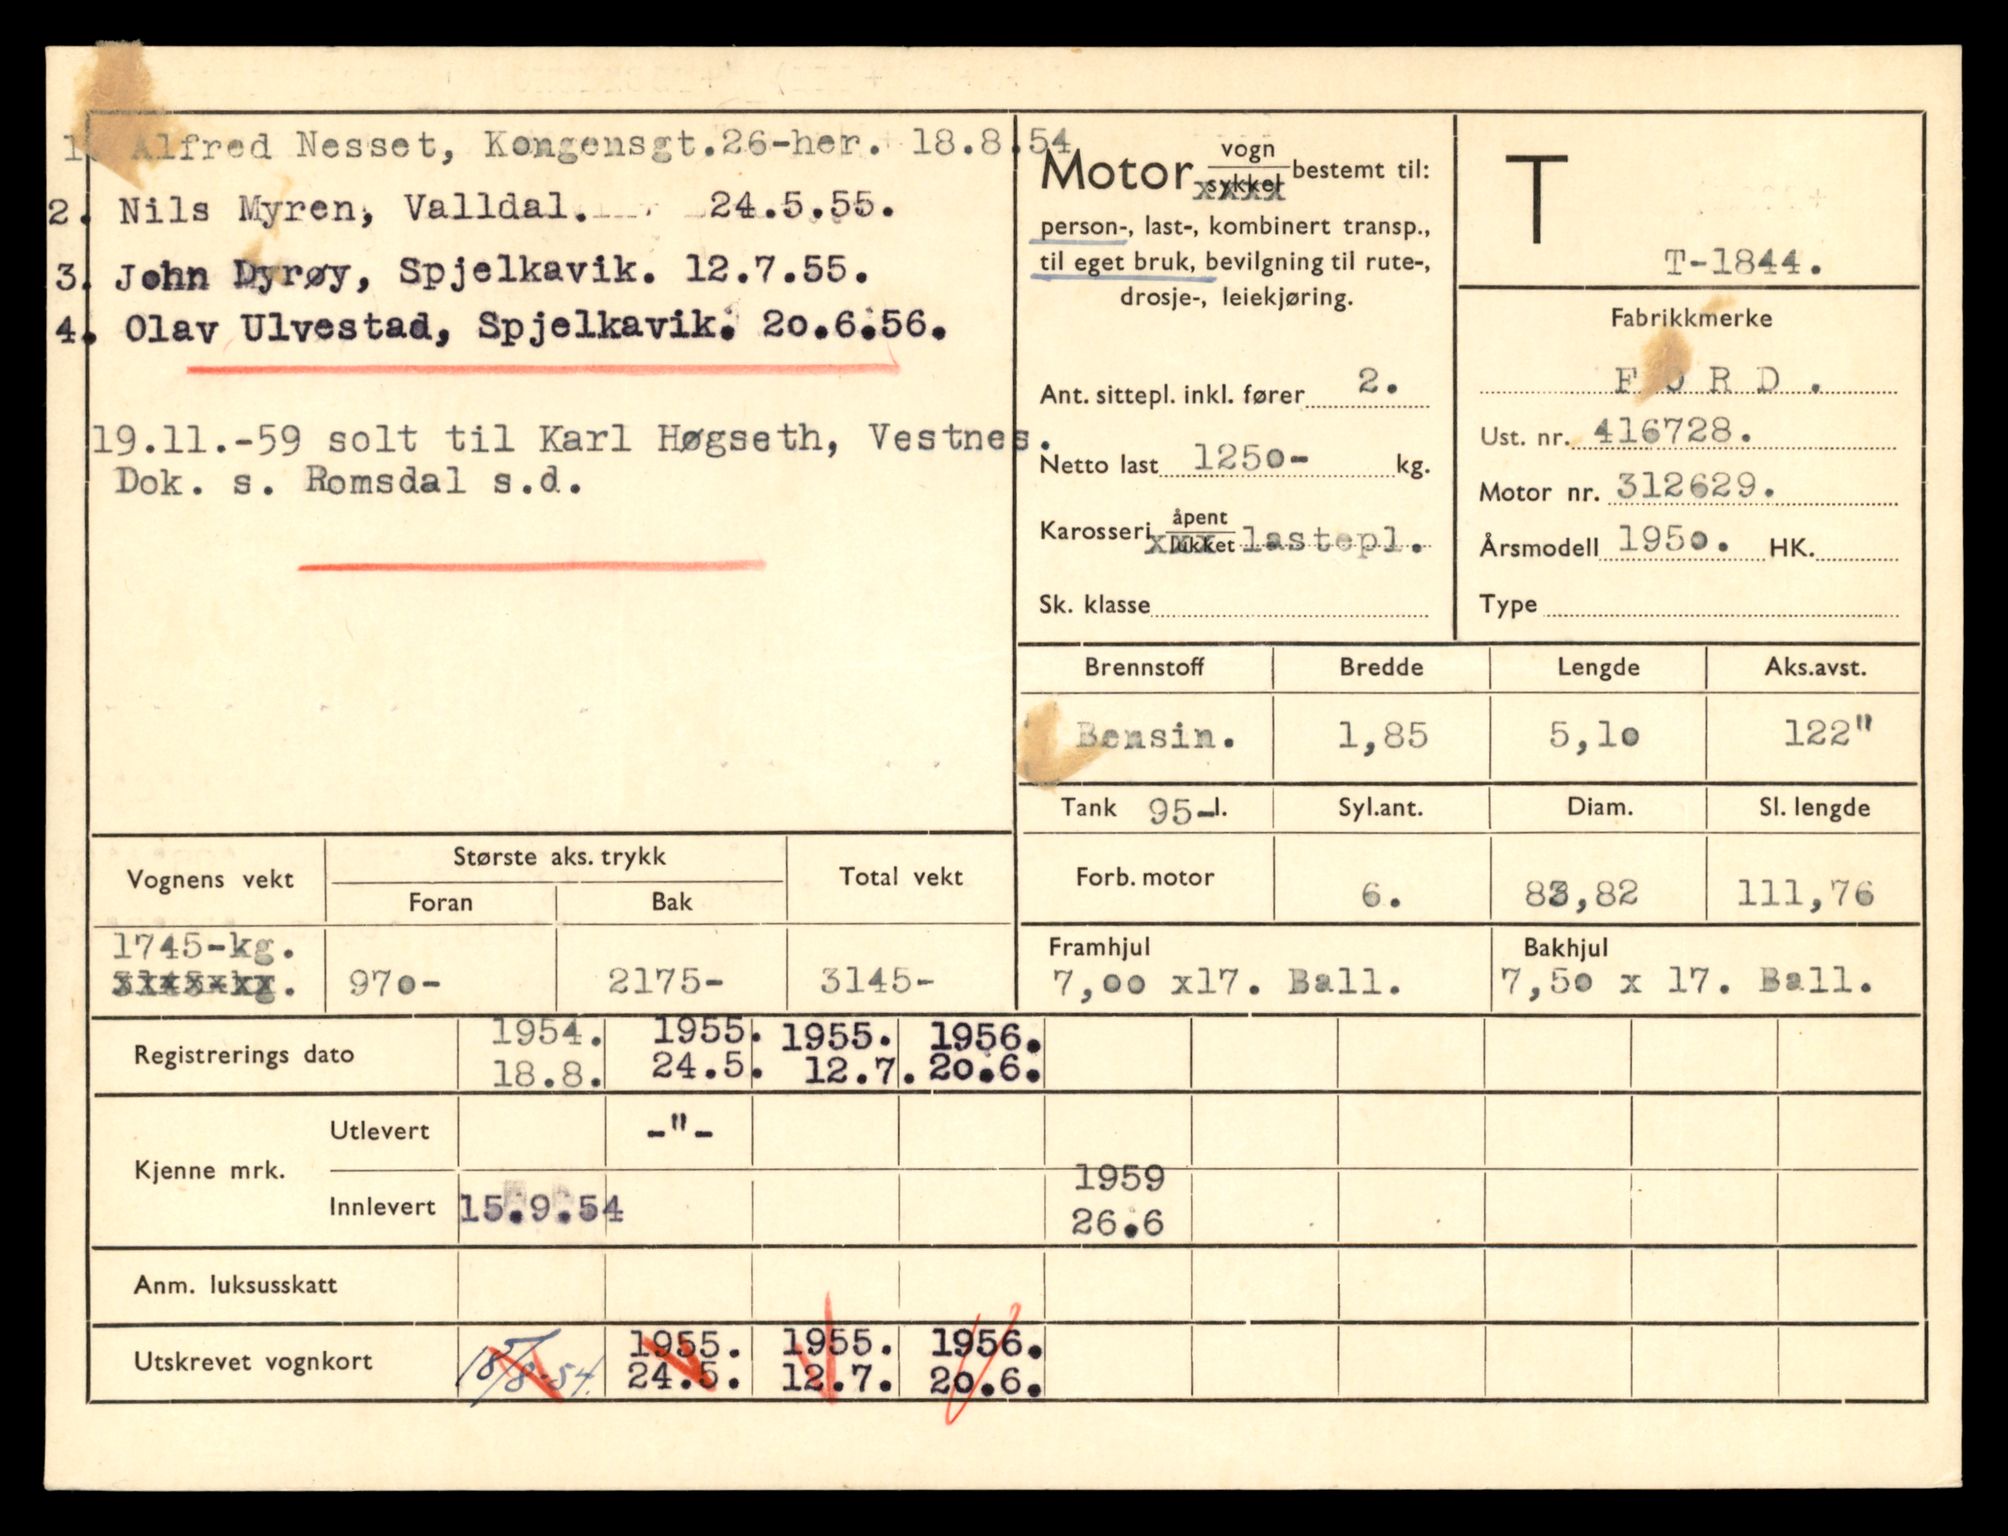 1. Alfred Nesset, Kongensgt.26-her. 18.8.54
2. Nils Myren, Valldal. 24.5.55.
3. John Dyrøy, Spjelkavik. 12.7.55.
4. Olav Ulvestad, Spjelkavik. 20.6.56.
19.11.-59 solt til Karl Høgseth, Vestnes.
Dok. s. Romsdal s.d.
Motor vogn sykkel bestemt til:
person-, last-, kombinert transp.,
til eget bruk, bevilgning til rute-,
drosje-, leiekjøring.
Ant. sittepl. inkl. fører 2.
Netto last 1250- kg.
Karosseri åpent lukket lastepl.
Sk. klasse
T
T-1844.
Fabrikkmerke
FORD.
Ust. nr. 416728.
Motor nr. 312629.
Årsmodell 1950. HK.
Type
Brennstoff Bredde Lengde Aks.avst.
Bensin. 1,85 5,10 122"
Tank 95-l. Syl.ant. Diam. Sl. lengde
Forb. motor 6. 83,82 111,76
Framhjul Bakhjul
7,00 x17. Ball. 7,50 x 17. Ball.
Vognens vekt Største aks. trykk Total vekt
Foran Bak
1745-kg.
3145-kg. 970- 2175- 3145-
Registrerings dato 1954. 1955. 1955. 1956.
18.8. 24.5. 12.7. 20.6.
Utlevert -"-
Kjenne mrk.
1959
Innlevert 15.9.54 26.6
Anm. luksusskatt
Utskrevet vognkort 18/8-54. 1955. 1955. 1956.
24.5. 12.7. 20.6.